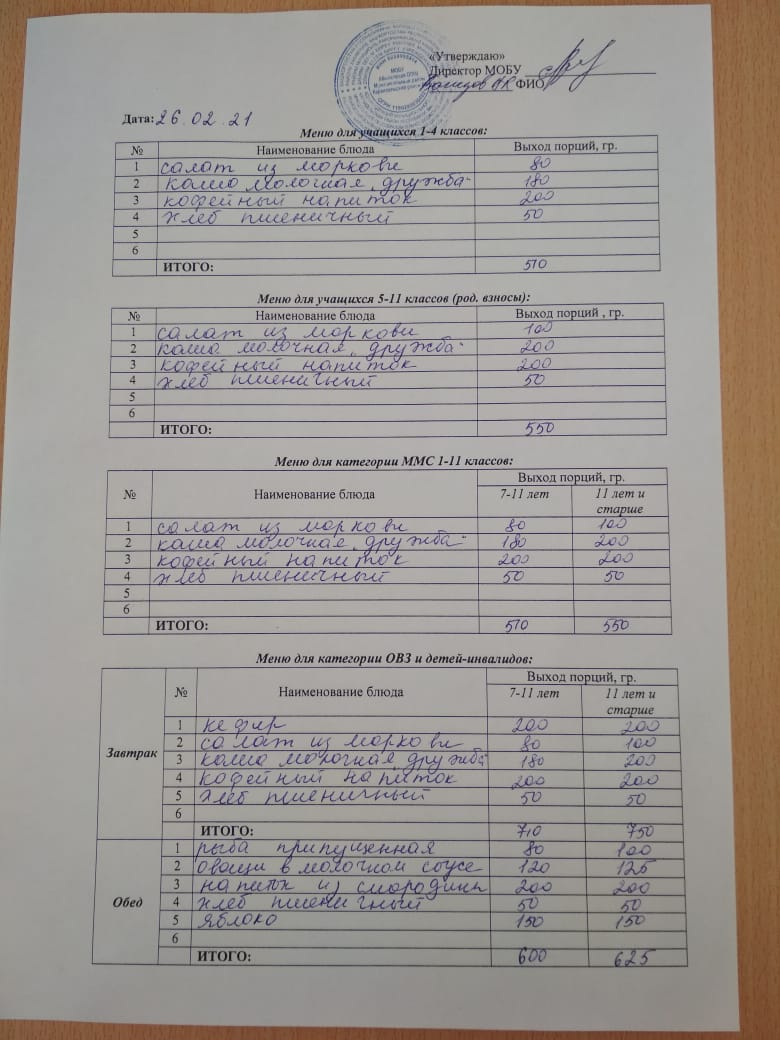 «Утверждаю»
Директор МОБУ
ФИО
МОБУ
Дата: 26.02.21
Меню для учащихся 1-4 классов:
№ Наименование блюда Выход порций, гр.
1 салат из моркови 80
2 каша молочная „дружба" 180
3 кофейный напиток 200
4 хлеб пшеничный 50
5
6
ИТОГО: 510
Меню для учащихся 5-11 классов (род. взносы):
№ Наименование блюда Выход порций , гр.
1 салат из моркови 100
2 каша молочная „дружба" 200
3 кофейный напиток 200
4 хлеб пшеничный 50
5
6
ИТОГО: 550
Меню для категории ММС 1-11 классов:
№ Наименование блюда Выход порций, гр.
7-11 лет 11 лет и
старше
1 салат из моркови 80 100
2 каша молочная „дружба" 180 200
3 кофейный напиток 200 200
4 хлеб пшеничный 50 50
5
6
ИТОГО: 510 550
Меню для категории ОВЗ и детей-инвалидов:
№ Наименование блюда Выход порций, гр.
7-11 лет 11 лет и
старше
Завтрак
1 кефир 200 200
2 салат из моркови 80 100
3 каша молочная „дружба" 180 200
4 кофейный напиток 200 200
5 хлеб пшеничный 50 50
6
ИТОГО: 710 750
Обед
1 рыба припущенная 80 100
2 овощи в молочном соусе 120 125
3 напиток из смородины 200 200
4 хлеб пшеничный 50 50
5 яблоко 150 150
6
ИТОГО: 600 625